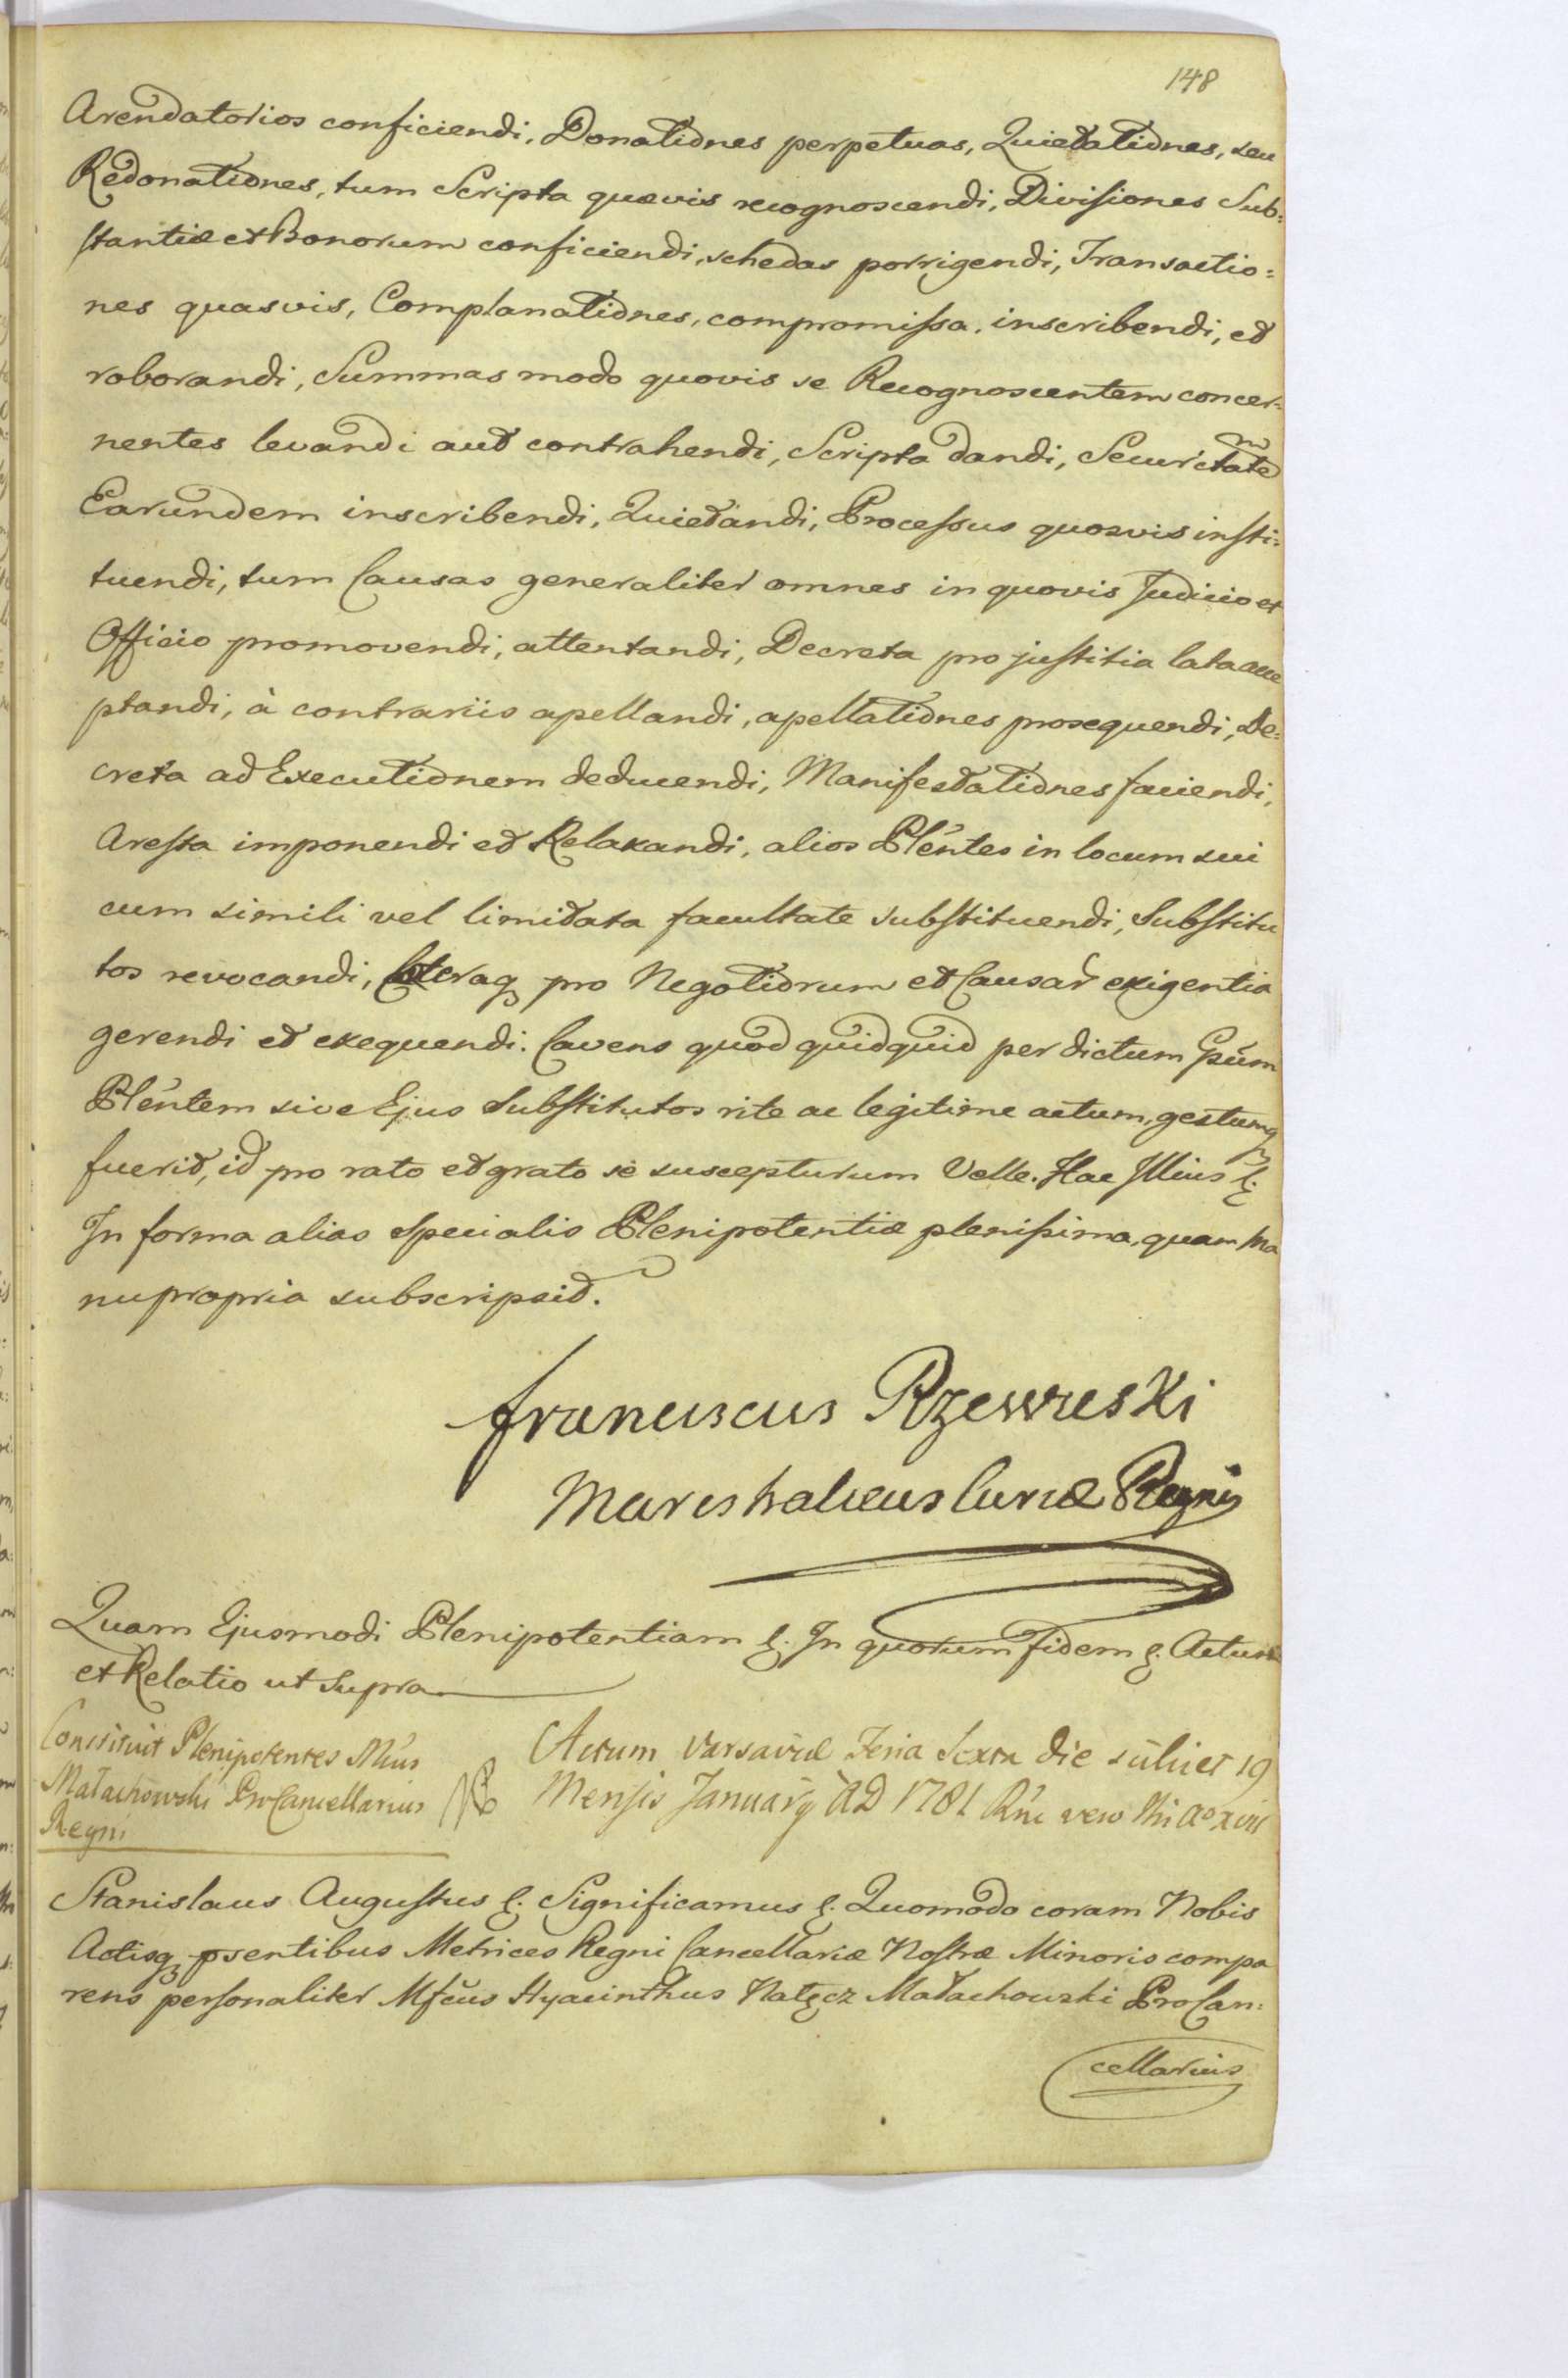 148
Arendatorios conficiendi, Donationes perpetuas, Quietationes, seu
Redonationes, tum Scripta quævis recognoscendi, Divisiones Sub=
stantiæ et Bonorum conficiendi, schedas porrigendi, Transactio=
nes quasvis, Complanationes, compromissa, inscribendi, et
roborandi, Summas modo quovis se Recognoscentem concer=
nentes levandi aut contrahendi, Scripta dandi, Securitatem
Earundem inscribendi, Quietandi, Processus quosvis insti=
tuendi, tum Causas generaliter omnes in quovis Judicio et
Officio promovendi, attentandi, Decreta pro justitia lata acce
ptandi, à contrariis apellandi, apellationes prosequendi, De=
creta ad Executionem deducendi, Manifestationes faciendi,
Aresta imponendi et Relaxandi, alios Plentes in locum sui
cum simili vel limitata facultate substituendi, Substitu
tos revocandi, Cæteraq pro Negotiorum et Causar exigentia
gerendi et exequendi. Cavens quod quidquid per dictum Gsum
Plentem sive Ejus Substitutos rite ac legitime actum, gestumq
fuerit, id pro rato et grato se suscepturum Velle. Hac Illius
In forma alias specialis Plenipotentiæ plenissima, quam Ma
nu propria subscripsit.
Franciscus Rzewuski
Mareshalcus Curiæ Regni
Quam Ejusmodi Plenipotentiam &. In quorum fidem &. Actum
et Relatio ut supra
Constituit Plenipotentes Mcus
Małachowski ProCancellarius
Regni
Actum Varsaviæ Feria Sexta die scilicet 19
Mensis January AD 1781 Rni vero Nri Ao XVII
Stanislaus Augustus &. Significamus &. Quomodo coram Nobis
Actisq psentibus Metrices Regni Cancellariæ Nostræ Minoris compa
rens personaliter Mfcus Hyacinthus Nałęcz Małachowski ProCan=
cellarius